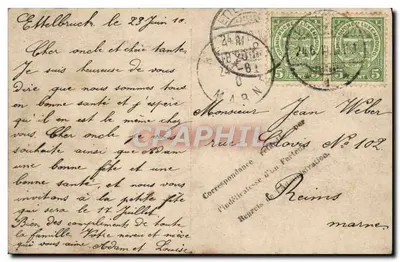 Ettelbruch le 23 Juin 10.
Cher oncle et chère tante,
Je suis heureuse de vous
dire que nous sommes tous
en bonne santé et j'espère
qu'il en est de même chez
vous. Cher oncle
souhaite ainsi que Adam
une bonne fête et une
bonne santé, et nous vous
invitons à la petite fête
qui sera le 17 Juillet.
Bien des compliments de toute
la famille Votre neveu et nièce
qui vous aime Adam et Louise
5 5
MARN
Monsieur Jean Weber
rue Clovis No 102
Reims
marne
Correspondance
l'indélicatesse d'un
Regrets de l'administration.
CPArama.com